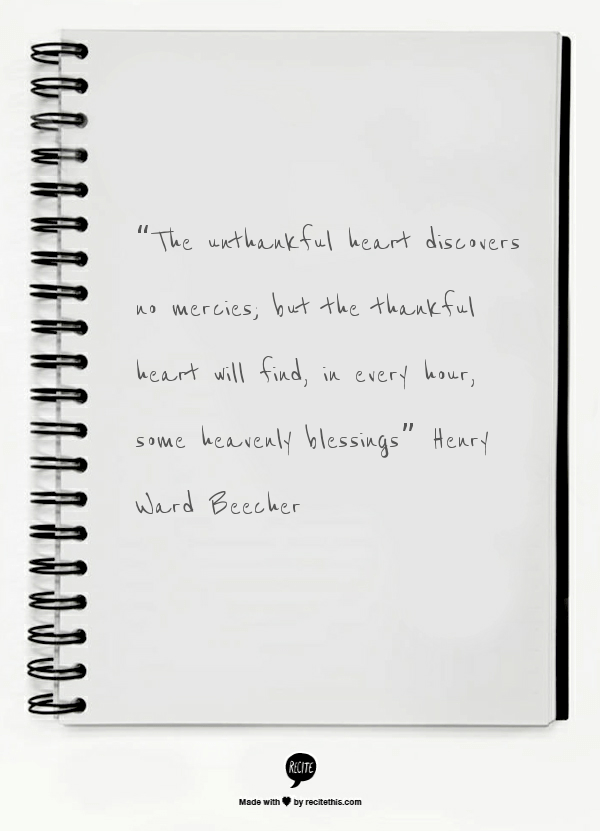 “The unthankful heart discovers
no mercies; but the thankful
heart will find, in every hour,
some heavenly blessings” Henry
Ward Beecher
RECITE
Made with ♥ by recitethis.com